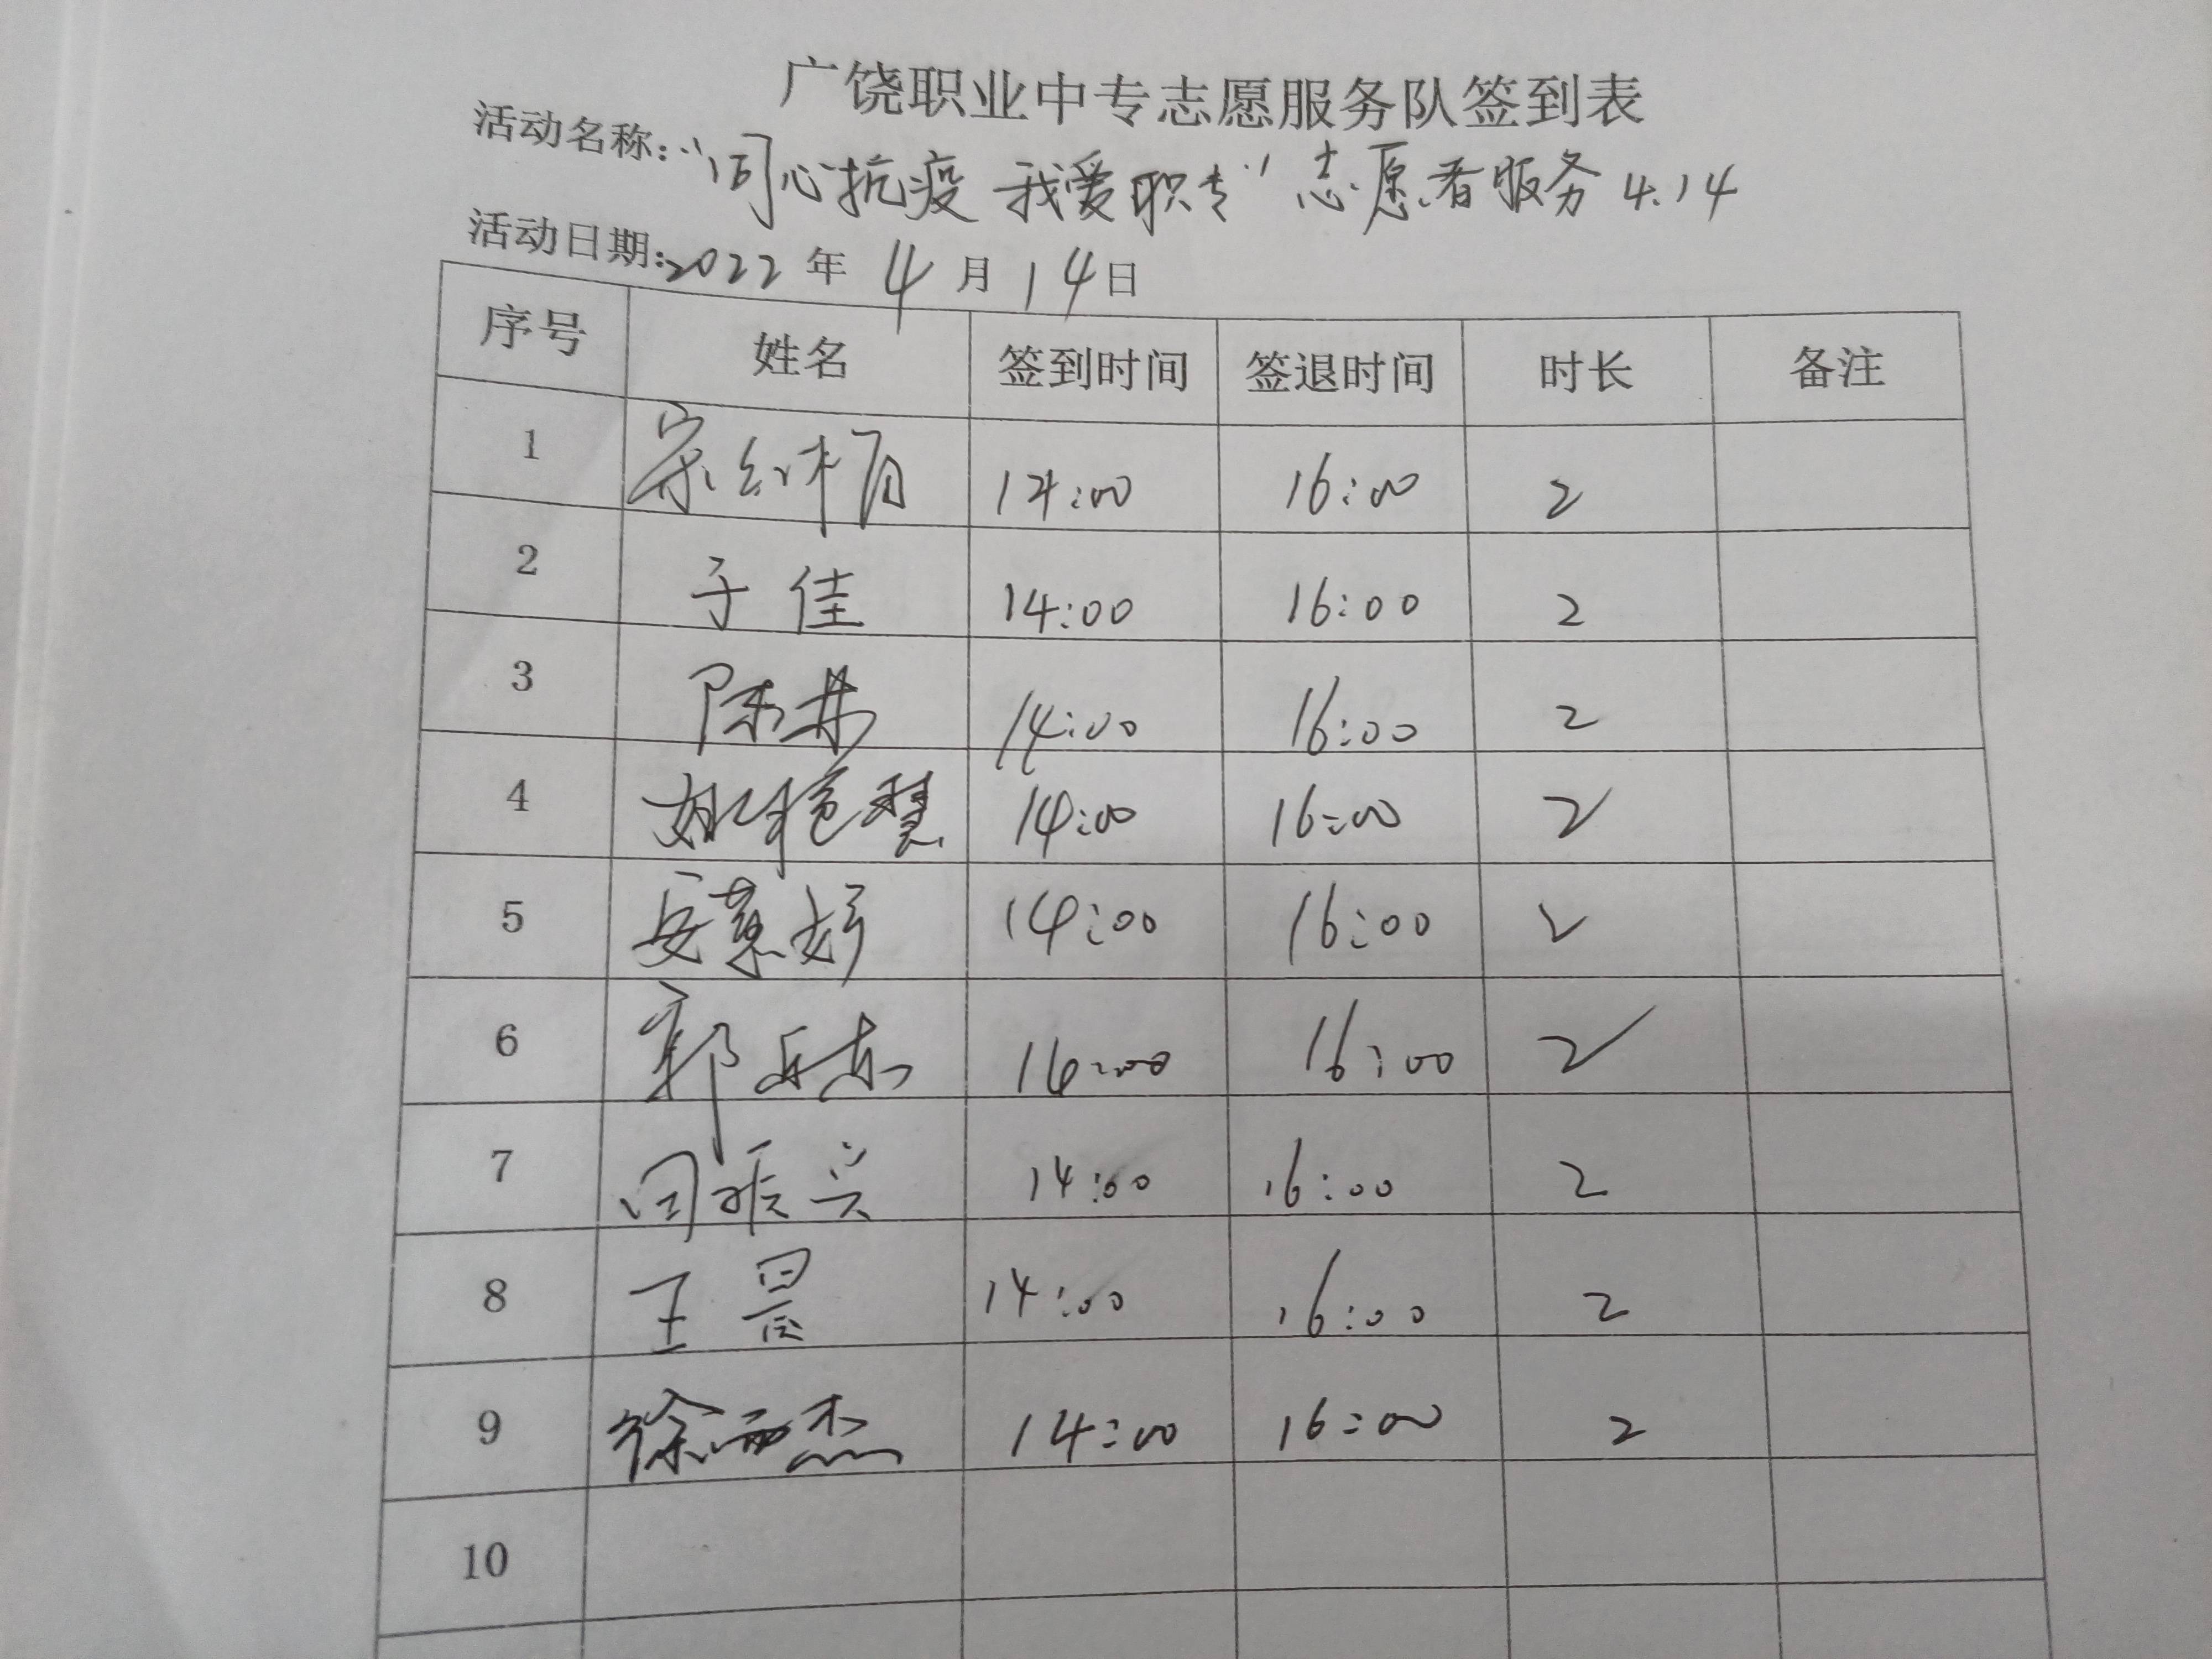 广饶职业中专志愿服务队签到表
活动名称:“同心抗疫 我爱职专”志愿者服务 4.14
活动日期:2022年 4 月 14日
序号 姓名 签到时间 签退时间 时长 备注
1 14:00 16:00 2
2 于佳 14:00 16:00 2
3 陈井 14:00 16:00 2
4 姚艳慧 14:00 16:00 2
5 安慧好 14:00 16:00 2
6 郭 16:00 2
7 闫振兴 14:00 16:00 2
8 王晨 14:00 16:00 2
9 徐西杰 14:00 16:00 2
10